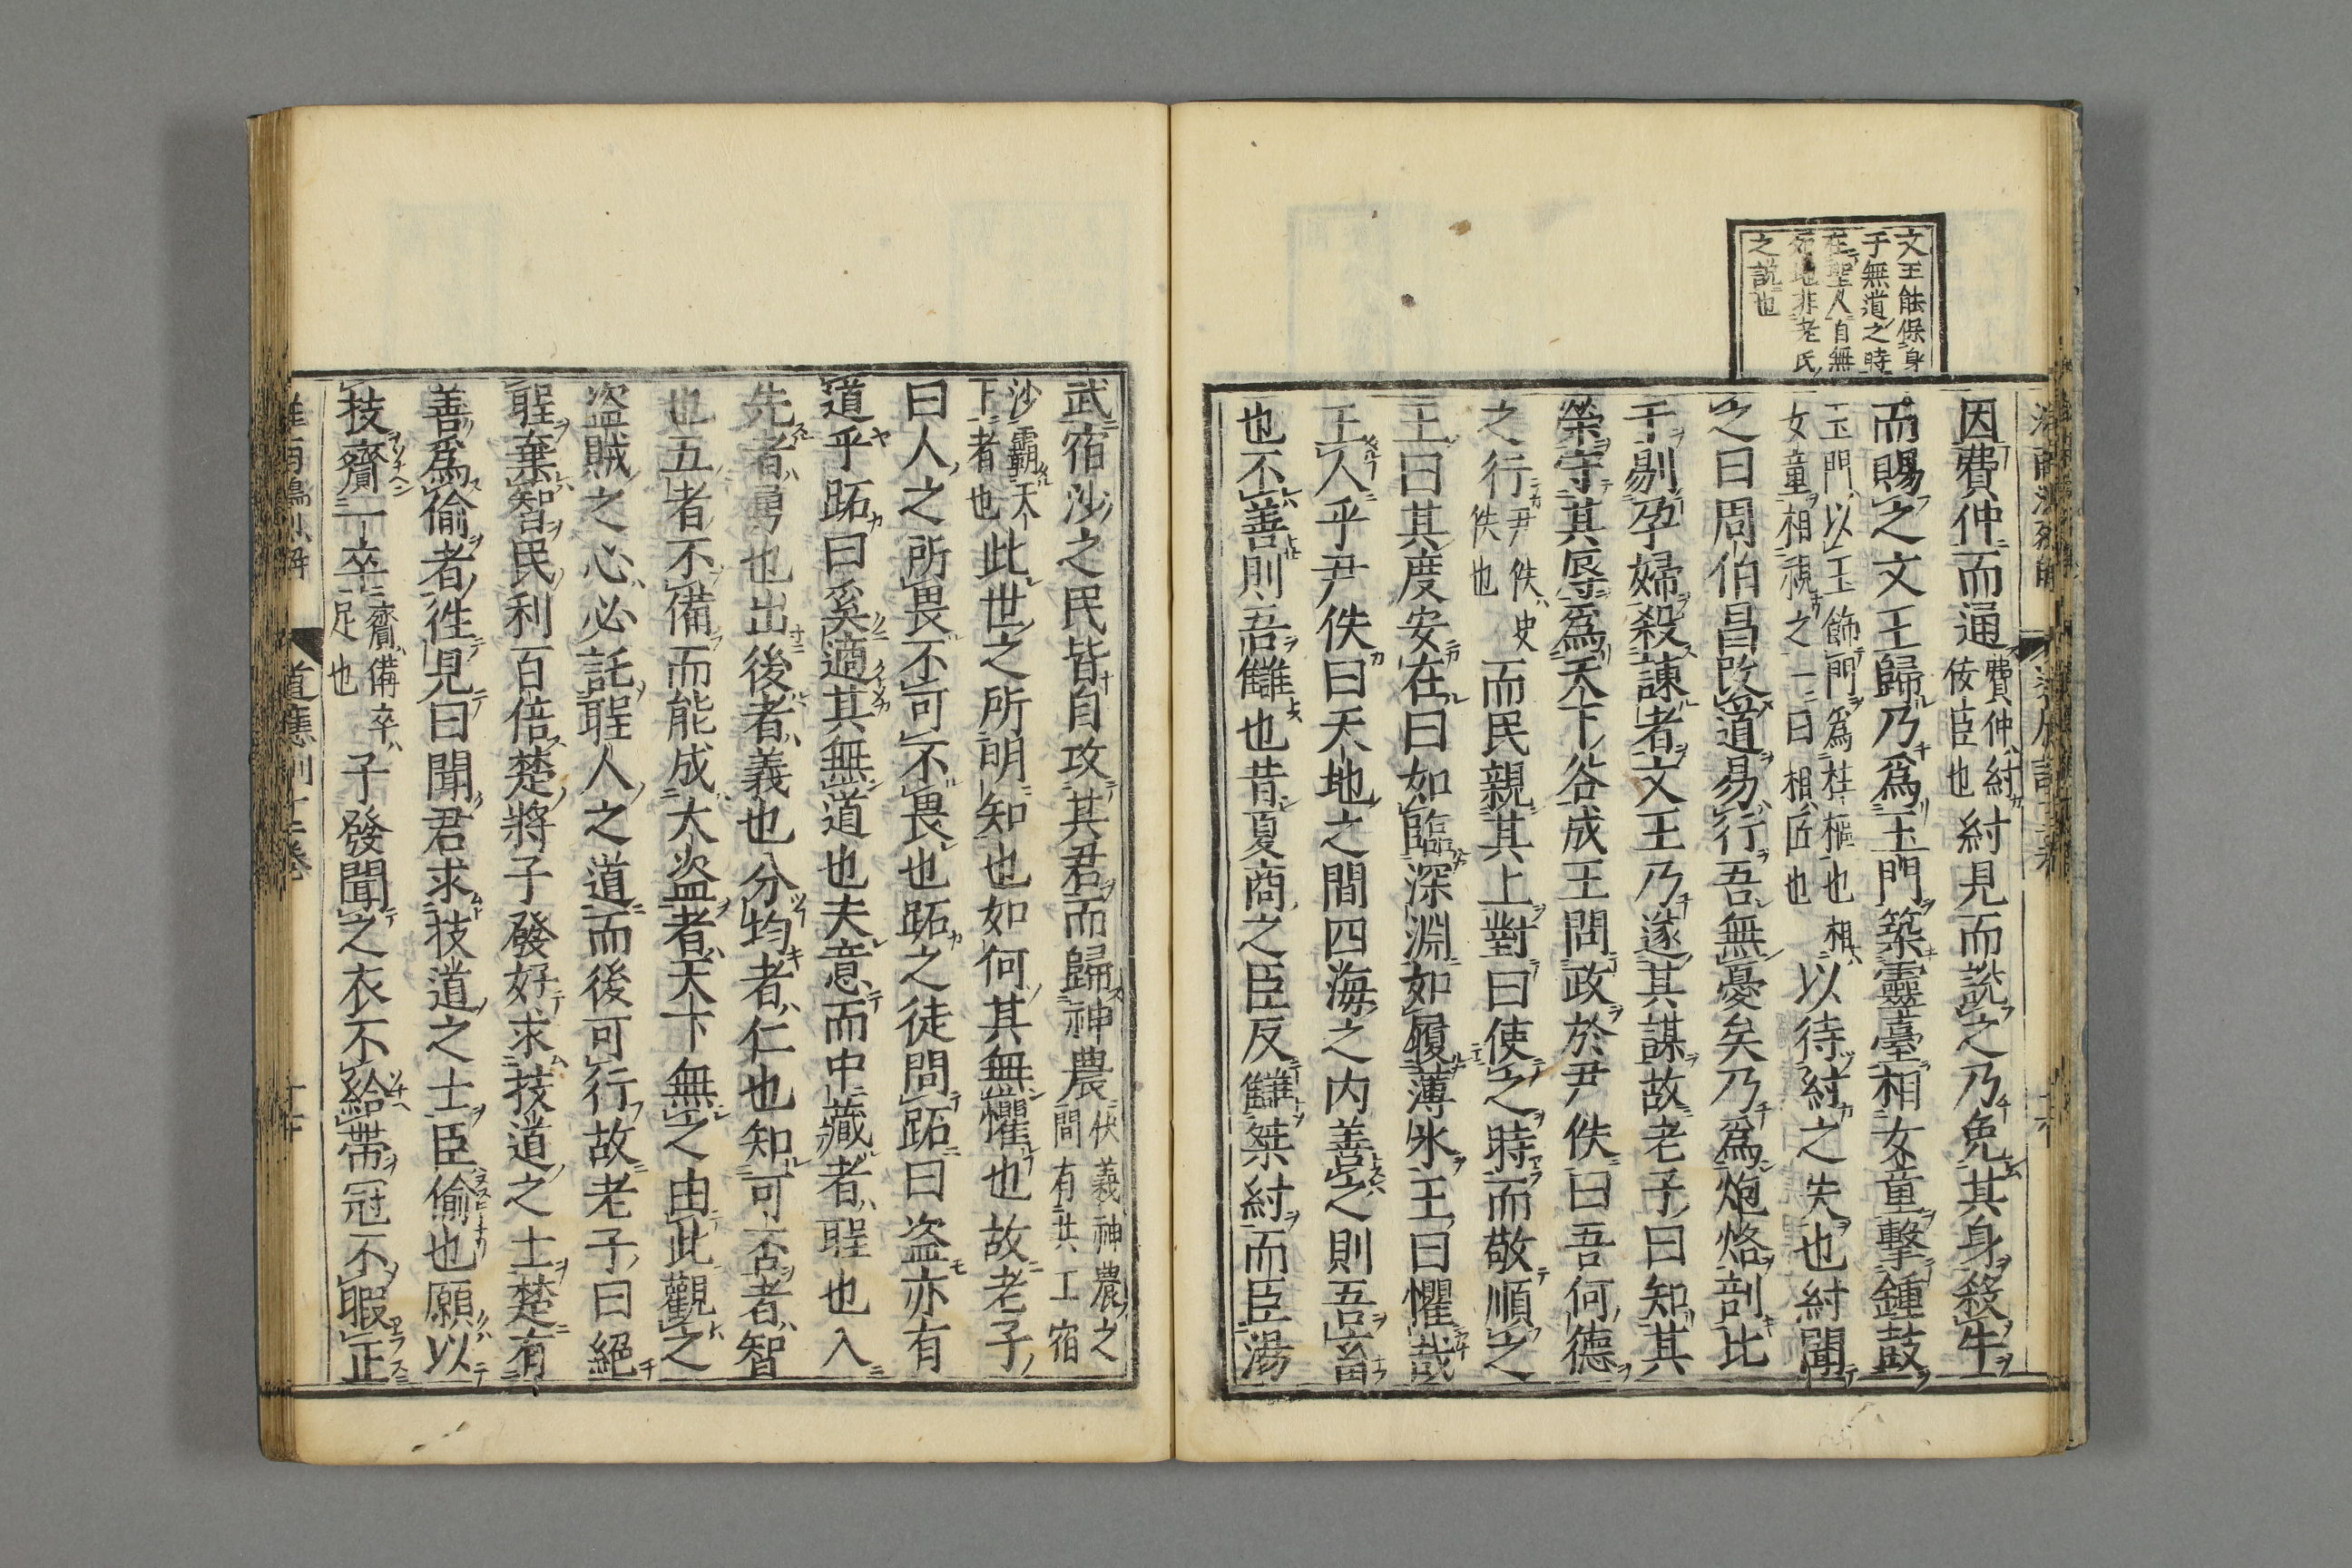 文王能保身
于無道之時
在聖人自無
死地非老氏
之説也
因費仲而通費仲紂佞臣也紂見而説之乃免其身殺牛
而賜之文王歸乃爲玉門築靈臺相女童擊鍾鼓
玉門以玉飾門爲柱樞也相女童相視之一曰相匠也以待紂之失也紂聞
之曰周伯昌改道易行吾無憂矣乃爲炮烙剖比
干剔孕婦殺諫者文王乃遂其謀故老子曰知其
榮守其辱爲天下谷成王問政於尹佚曰吾何德
之行尹佚史佚也而民親其上對曰使之時而敬順之
王曰其度安在曰如臨深淵如履薄氷王曰懼哉
王人乎尹佚曰天地之間四海之内善之則吾畜
也不善則吾讎也昔夏商之臣反讎桀紂而臣湯
武宿沙之民皆自攻其君而歸神農伏義神農之間有共工宿
沙霸天下者也此世之所明知也如何其無懼也故老子
曰人之所畏不可不畏也跖之徒問跖曰盗亦有
道乎跖曰奚適其無道也夫意而中藏者聖也入
先者勇也出後者義也分均者仁也知可否者智
也五者不備而能成大盗者天下無之由此觀之
盗賊之心必託聖人之道而後可行故老子曰絕
聖棄智民利百倍楚將子發好求技道之士楚有
善爲偷者徃見曰聞君求技道之士臣偷也願以
技齎一卒齎備卒足也子發聞之衣不給帶冠不暇正
道應訓十二卷